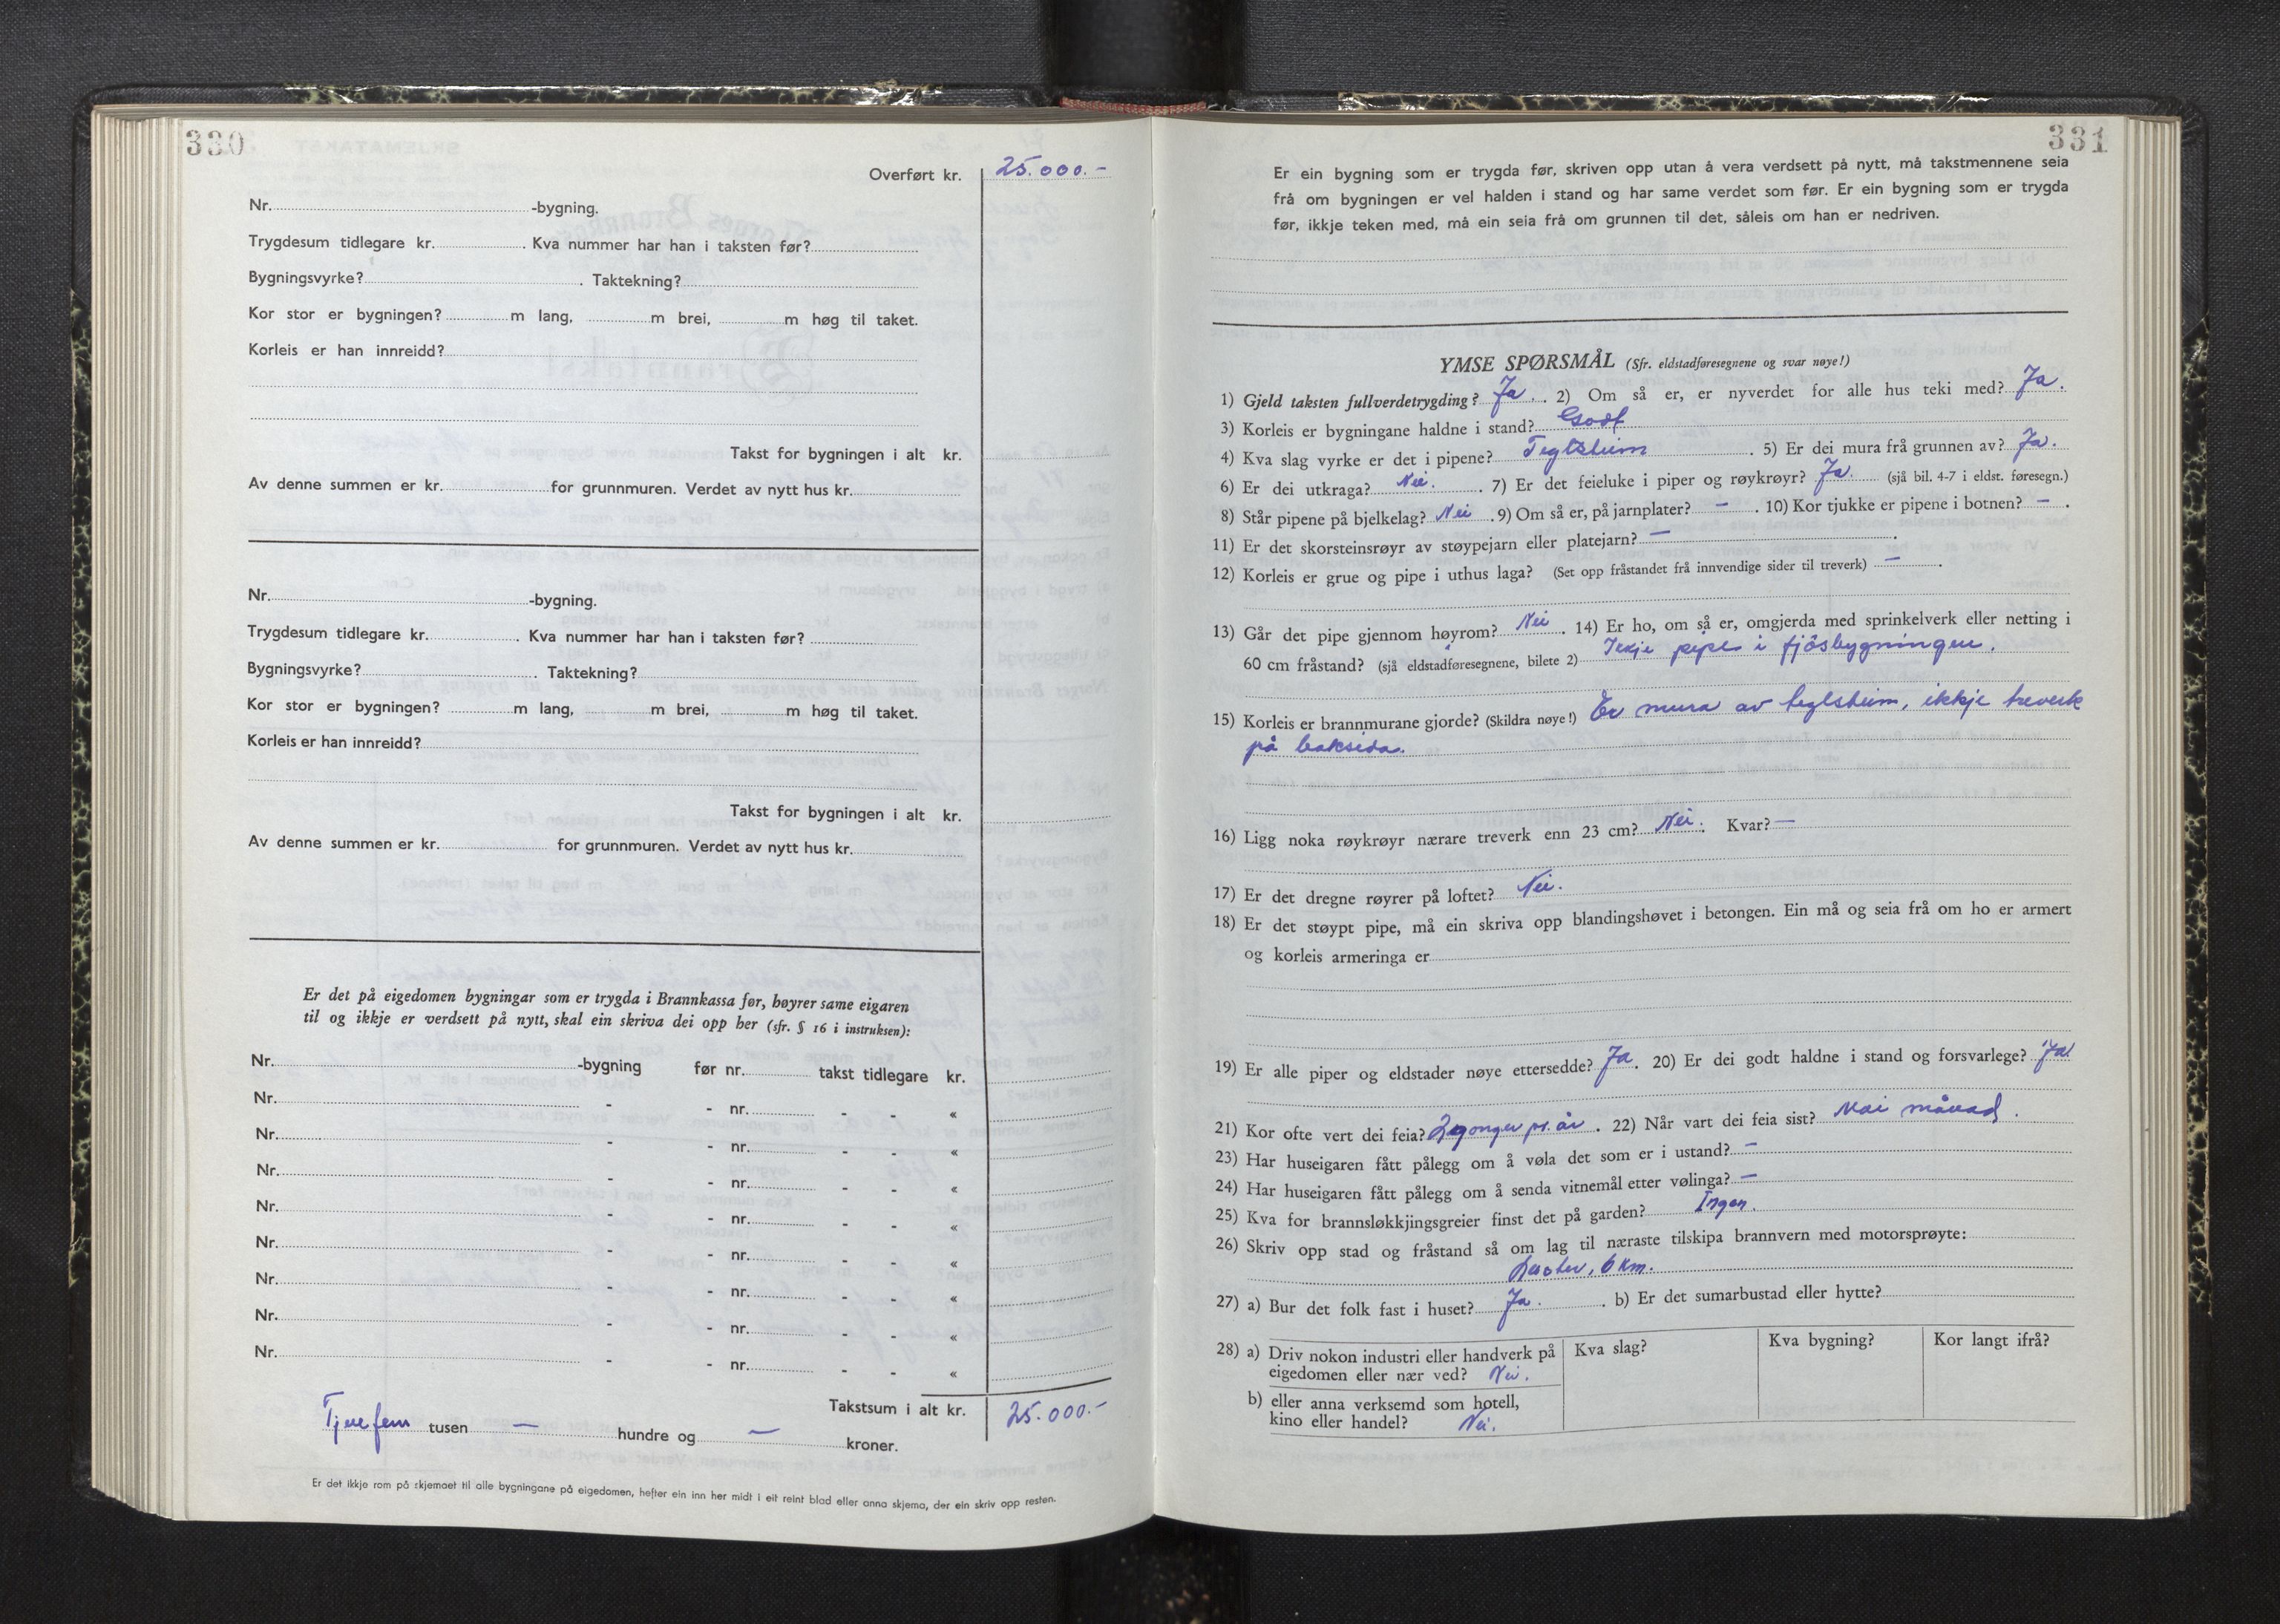 330
Overført kr. 25.000.-
Nr. -bygning.
Trygdesum tidlegare kr. . Kva nummer har han i taksten før?
Bygningsvyrke? . Taktekning?
Kor stor er bygningen? m lang, m brei, m høg til taket.
Korleis er han innreidd?
Takst for bygningen i alt kr.
Av denne summen er kr. for grunnmuren. Verdet av nytt hus kr.
Nr. -bygning.
Trygdesum tidlegare kr. . Kva nummer har han i taksten før?
Bygningsvyrke? . Taktekning?
Kor stor er bygningen? m lang, m brei, m høg til taket.
Korleis er han innreidd?
Takst for bygningen i alt kr.
Av denne summen er kr. for grunnmuren. Verdet av nytt hus kr.
Er det på eigedomen bygningar som er trygda i Brannkassa før, høyrer same eigaren
til og ikkje er verdsett på nytt, skal ein skriva dei opp her (sfr. § 16 i instruksen):
Nr. -bygning før nr. takst tidlegare kr.
Nr. - - nr. - - «
Nr. - - nr. - - «
Nr. - - nr. - - «
Nr. - - nr. - - «
Nr. - - nr. - - «
Nr. - - nr. - - «
Nr. - - nr. - - «
Nr. - - nr. - - «
Takstsum i alt kr. 25.000.-
Tjuefem tusen — hundre og — kroner.
Er det ikkje rom på skjemaet til alle bygningane på eigedomen, hefter ein inn her midt i eit reint blad eller anna skjema, der ein skriv opp resten.
331
Er ein bygning som er trygda før, skriven opp utan å vera verdsett på nytt, må takstmennene seia
frå om bygningen er vel halden i stand og har same verdet som før. Er ein bygning som er trygda
før, ikkje teken med, må ein seia frå om grunnen til det, såleis om han er nedriven.
YMSE SPØRSMÅL (Sfr. eldstadføresegnene og svar nøye!)
1) Gjeld taksten fullverdetrygding? Ja. . 2) Om så er, er nyverdet for alle hus teki med? Ja.
3) Korleis er bygningane haldne i stand? Godt
4) Kva slag vyrke er det i pipene? Teglstein . 5) Er dei mura frå grunnen av? Ja.
6) Er dei utkraga? Nei. . 7) Er det feieluke i piper og røykrøyr? Ja. (sjå bil. 4-7 i eldst. føresegn.)
8) Står pipene på bjelkelag? Nei . 9) Om så er, på jarnplater? — . 10) Kor tjukke er pipene i botnen? — .
11) Er det skorsteinsrøyr av støypejarn eller platejarn? — .
12) Korleis er grue og pipe i uthus laga? (Set opp fråstandet frå innvendige sider til treverk) — .
13) Går det pipe gjennom høyrom? Nei . 14) Er ho, om så er, omgjerda med sprinkelverk eller netting i
60 cm fråstand? (sjå eldstadføresegnene, bilete 2) Ikkje pipe i fjösbygningen.
15) Korleis er brannmurane gjorde? (Skildra nøye!) Er mura av teglstein, ikkje treverk
på baksida.
16) Ligg noka røykrøyr nærare treverk enn 23 cm? Nei. Kvar? —
17) Er det dregne røyrer på loftet? Nei.
18) Er det støypt pipe, må ein skriva opp blandingshøvet i betongen. Ein må og seia frå om ho er armert
og korleis armeringa er
19) Er alle piper og eldstader nøye ettersedde? Ja . 20) Er dei godt haldne i stand og forsvarlege? Ja
21) Kor ofte vert dei feia? 2 gonger pr. år . 22) Når vart dei feia sist? Mai månad .
23) Har huseigaren fått pålegg om å vøla det som er i ustand? —
24) Har huseigaren fått pålegg om å senda vitnemål etter vølinga? —
25) Kva for brannsløkkjingsgreier finst det på garden? Ingen.
26) Skriv opp stad og fråstand så om lag til næraste tilskipa brannvern med motorsprøyte:
Luster, 6 km.
27) a) Bur det folk fast i huset? Ja. . b) Er det sumarbustad eller hytte?
28) a) Driv nokon industri eller handverk på Kva slag? Kva bygning? Kor langt ifrå?
eigedomen eller nær ved? Nei.
b) eller anna verksemd som hotell,
kino eller handel? Nei.